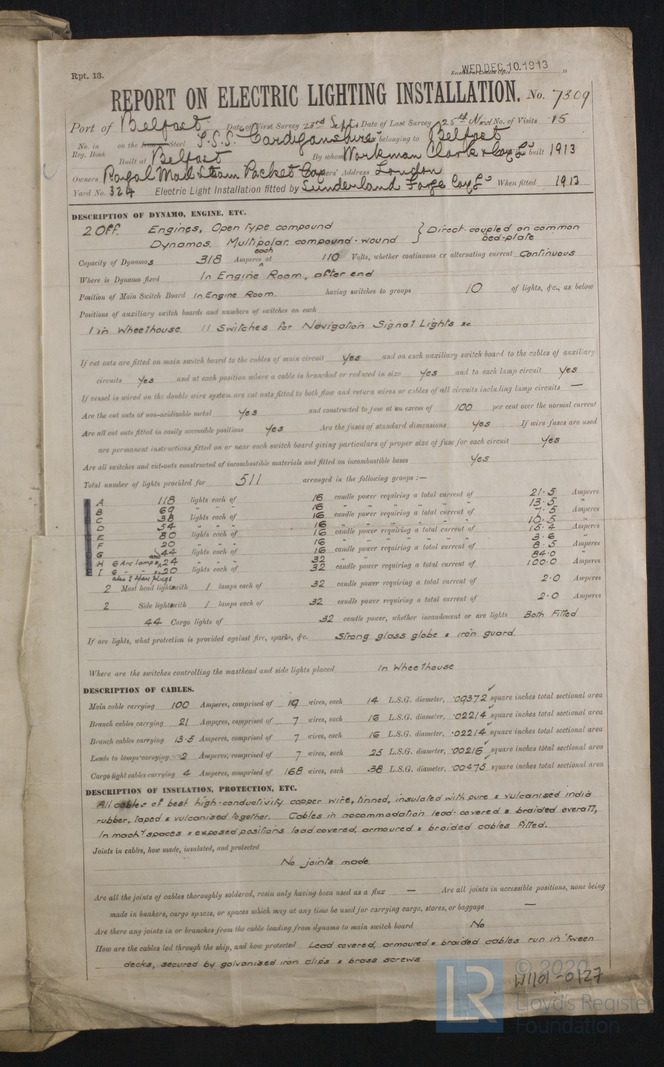 Rpt. 13.
WED. DEC. 10. 1913
REPORT ON ELECTRIC LIGHTING INSTALLATION. No. 7309
Port of Belfast Date of First Survey 23rd Sept. Date of Last Survey 25th Nov No. of Visits 15
No. in Reg. Book on the Iron or Steel S.S. "Cardiganshire" belonging to Belfast
Built at Belfast By whom Workman Clark & Coy Ld. built 1913
Owners Royal Mail Steam Packet Coy Owners' Address London
Yard No. 324 Electric Light Installation fitted by Sunderland Forge Coy Ld. When fitted 1913
DESCRIPTION OF DYNAMO, ENGINE, ETC.
2 Off. Engines, Open type compound } Direct coupled on common
Dynamos. Multipolar compound-wound } bed-plate
Capacity of Dynamos 318 Amperes each at 110 Volts, whether continuous or alternating current Continuous
Where is Dynamo fixed In Engine Room, after end
Position of Main Switch Board In Engine Room. having switches to groups 10 of lights, &c., as below
Positions of auxiliary switch boards and numbers of switches on each
1 in Wheelhouse. 11 Switches for Navigation Signal Lights &c
If cut outs are fitted on main switch board to the cables of main circuit Yes and on each auxiliary switch board to the cables of auxiliary
circuits Yes and at each position where a cable is branched or reduced in size Yes and to each lamp circuit Yes
If vessel is wired on the double wire system are cut outs fitted to both flow and return wires or cables of all circuits including lamp circuits —
Are the cut outs of non-oxidizable metal Yes and constructed to fuse at an excess of 100 per cent over the normal current
Are all cut outs fitted in easily accessible positions Yes Are the fuses of standard dimensions Yes If wire fuses are used
are permanent instructions fitted on or near each switch board giving particulars of proper size of fuse for each circuit Yes
Are all switches and cut-outs constructed of incombustible materials and fitted on incombustible bases Yes
Total number of lights provided for 511 arranged in the following groups :—
A 118 lights each of 16 candle power requiring a total current of 21.5 Amperes
B 69 " " " 16 " " " " " 13.5 "
C 38 lights each of 16 candle power requiring a total current of 7.5 Amperes
D 54 " " " 16 " " " " " 10.5 "
E 80 lights each of 16 candle power requiring a total current of 15.4 Amperes
F 20 " " " 16 " " " " " 3.6 "
G 44 lights each of 16 candle power requiring a total current of 8.5 Amperes
H 6 Arc lamps, 24 32 84.0 "
I 6 " " 20 lights each of 32 candle power requiring a total current of 100.0 Amperes
also 2 spare plugs
2 Mast head lights with 1 lamps each of 32 candle power requiring a total current of 2.0 Amperes
2 Side lights with 1 lamps each of 32 candle power requiring a total current of 2.0 Amperes
44 Cargo lights of 32 candle power, whether incandescent or arc lights Both Fitted
If arc lights, what protection is provided against fire, sparks, &c. Strong glass globe & iron guard.
Where are the switches controlling the masthead and side lights placed In Wheelhouse
DESCRIPTION OF CABLES.
Main cable carrying 100 Amperes, comprised of 19 wires, each 14 L.S.G. diameter, .09372 square inches total sectional area
Branch cables carrying 21 Amperes, comprised of 7 wires, each 16 L.S.G. diameter, .02214 square inches total sectional area
Branch cables carrying 13.5 Amperes, comprised of 7 wires, each 16 L.S.G. diameter, .02214 square inches total sectional area
Leads to lamps carrying 2 Amperes, comprised of 7 wires, each 25 L.S.G. diameter, .00216 square inches total sectional area
Cargo light cables carrying 4 Amperes, comprised of 168 wires, each 38 L.S.G. diameter, .00475 square inches total sectional area
DESCRIPTION OF INSULATION, PROTECTION, ETC.
All cables of best high-conductivity copper wire, tinned, insulated with pure & vulcanised india
rubber, taped & vulcanised together. Cables in accommodation lead-covered & braided overall,
In machy spaces & exposed positions lead covered, armoured & braided cables fitted.
Joints in cables, how made, insulated, and protected
No joints made
Are all the joints of cables thoroughly soldered, resin only having been used as a flux — Are all joints in accessible positions, none being
made in bunkers, cargo spaces, or spaces which may at any time be used for carrying cargo, stores, or baggage —
Are there any joints in or branches from the cable leading from dynamo to main switch board No
How are the cables led through the ship, and how protected Lead covered, armoured & braided cables run in 'tween
decks, secured by galvanised iron clips & brass screws
W1101-0127
© 2020
LR Lloyd's Register
Foundation